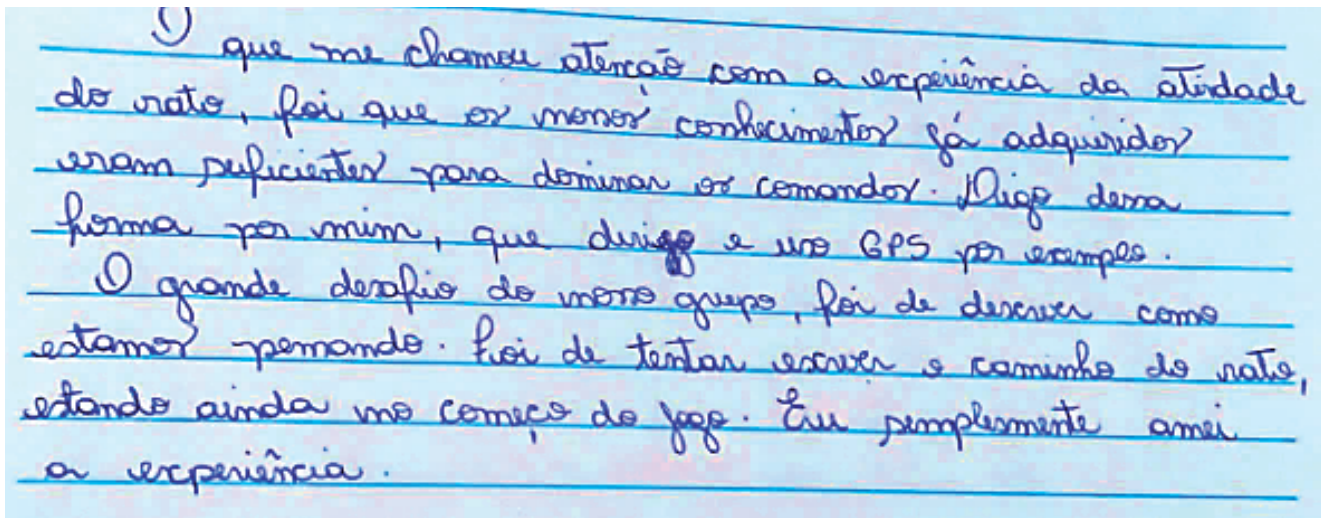 O que me chamou atenção com a experiência da atidade
do rato, foi que os nossos conhecimentos já adquiridos
eram suficientes para dominar os comandos. Digo dessa
forma por mim, que dirijo e uso GPS por exemplo.
O grande desafio do nosso grupo, foi de descrever como
estamos pensando. Foi de tentar escrever o caminho do rato,
estando ainda no começo do jogo. Eu simplesmente amei
a experiência.